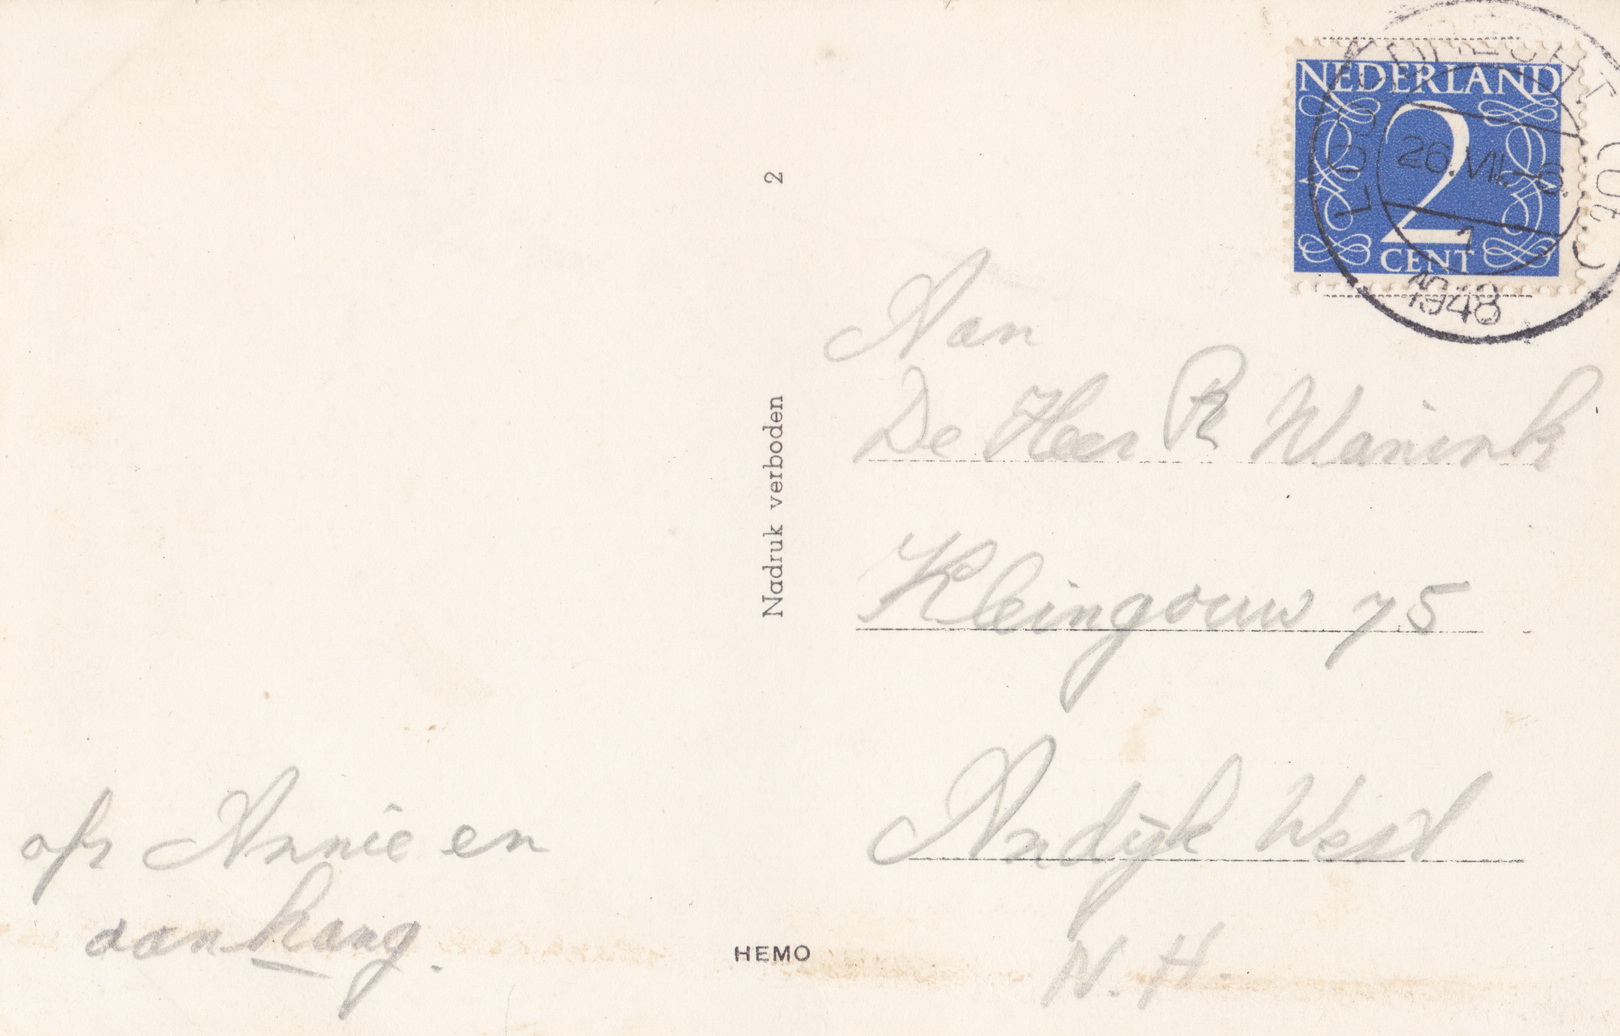 NEDERLAND
2
CENT
26.VII.-6.
1
1948
2
Nadruk verboden
Aan
De Heer R Wanink
Kleingouw 75
Andijk West
N.H.
afz Annie en
aanhang.
HEMO